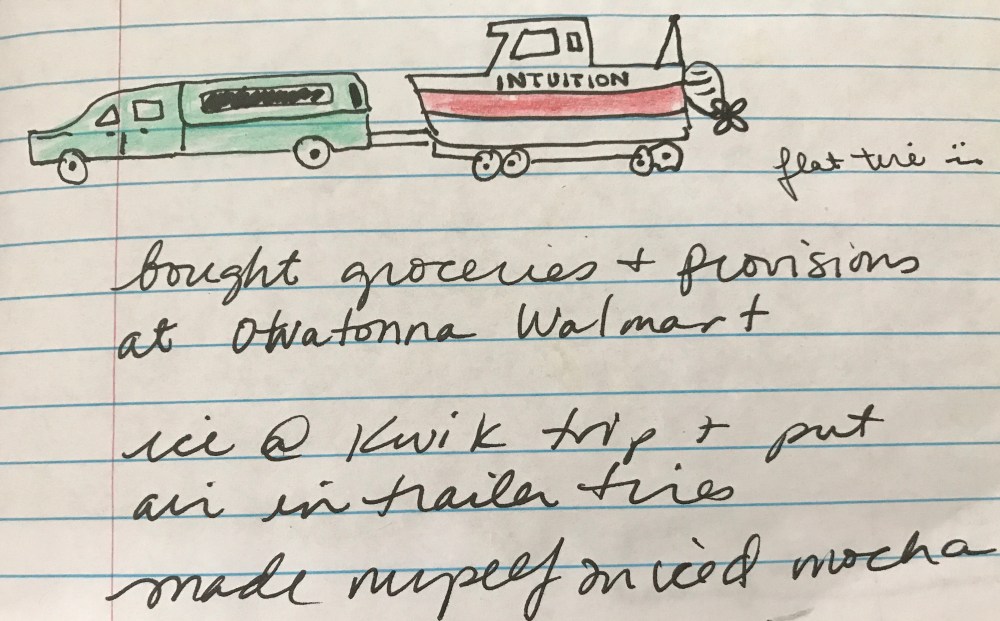 INTUITION
flat tire ü
bought groceries + provisions
at Owatonna Walmart
ice @ Kwik trip + put
air in trailer tires
made myself an iced mocha